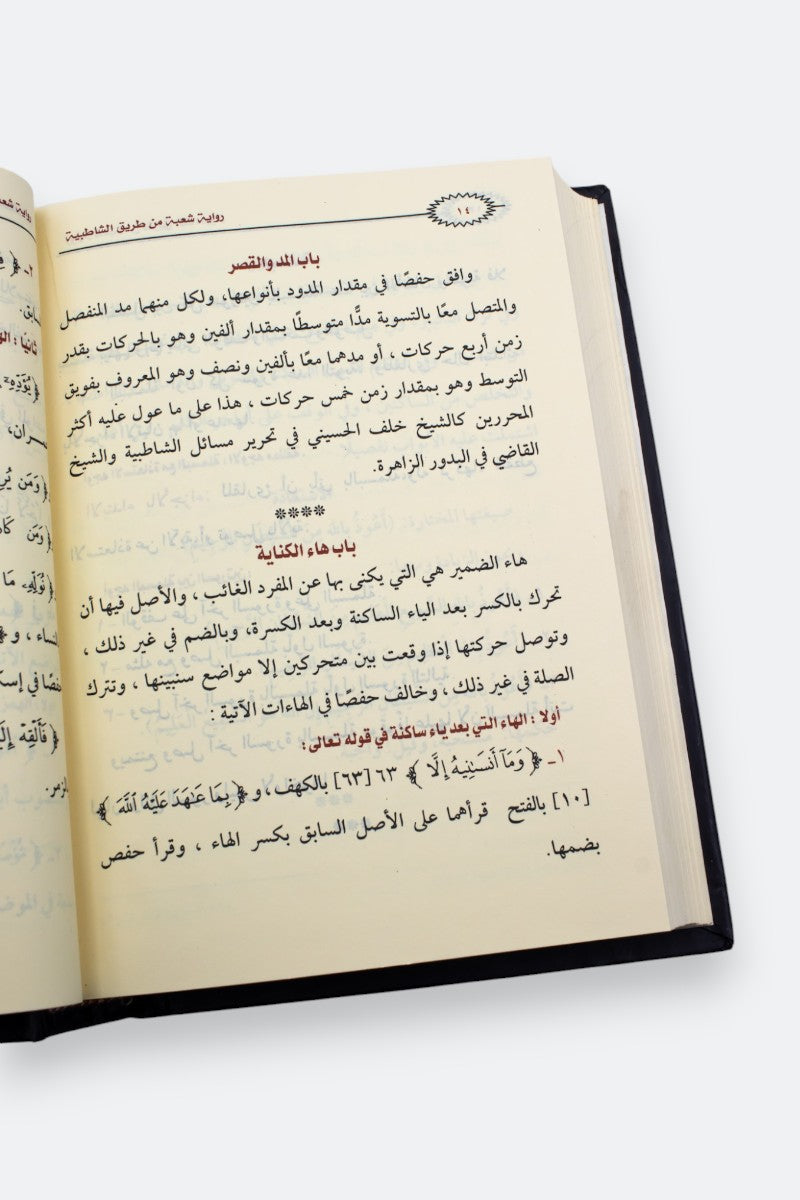 رواية شعبة من طريق الشاطبية
١٤
باب المد والقصر
وافق حفصًا في مقدار المدود بأنواعها، ولكل منهما مد المنفصل
والمتصل معًا بالتسوية مدًّا متوسطًا بمقدار ألفين وهو بالحركات بقدر
زمن أربع حركات ، أو مدهما معًا بألفين ونصف وهو المعروف بفويق
التوسط وهو بمقدار زمن خمس حركات ، هذا على ما عول عليه أكثر
المحررين كالشيخ خلف الحسيني في تحرير مسائل الشاطبية والشيخ
القاضي في البدور الزاهرة.
****
باب هاء الكناية
هاء الضمير هي التي يكنى بها عن المفرد الغائب ، والأصل فيها أن
تحرك بالكسر بعد الياء الساكنة وبعد الكسرة، وبالضم في غير ذلك ،
وتوصل حركتها إذا وقعت بين متحركين إلا مواضع سنبينها ، وتترك
الصلة في غير ذلك ، وخالف حفصًا في الهاءات الآتية :
أولا : الهاء التي بعد ياء ساكنة في قوله تعالى:
١ـ ﴿ وَمَآ أَنسَىٰنِيهُ إِلَّا ﴾ ٦٣ [٦٣] بالكهف، و ﴿ بِمَا عَـٰهَدَ عَلَيْهُ ٱللَّهَ ﴾
[١٠] بالفتح قرأهما على الأصل السابق بكسر الهاء ، وقرأ حفص
بضمها.